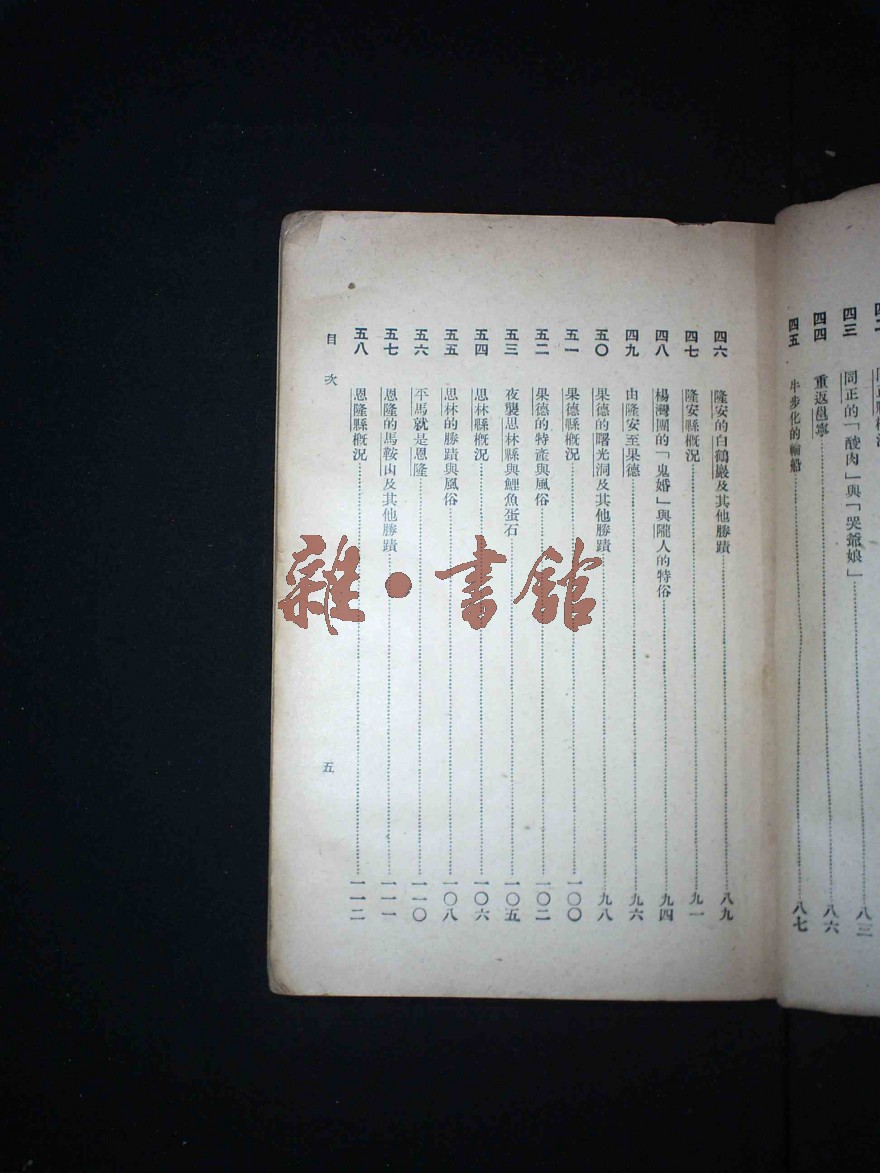 同正的「酸肉」與「哭爺娘」 八三
四三
四四 重返邕寧 八六
四五 牛步化的輪船 八七
四六 隆安的白鶴巖及其他勝蹟 八九
四七 隆安縣概況 九一
四八 楊灣團的「鬼婚」與隴人的特俗 九四
四九 由隆安至果德 九六
五〇 果德的曙光洞及其他勝蹟 九八
五一 果德縣概況 一〇〇
五二 果德的特產與風俗 一〇二
五三 夜襲思林縣與鯉魚蛋石 一〇五
五四 思林縣概況 一〇六
五五 思林的勝蹟與風俗 一〇八
五六 平馬就是恩隆 一一〇
五七 恩隆的馬鞍山及其他勝蹟 一一一
五八 恩隆縣概況 一一二
目次 五
雜·書館